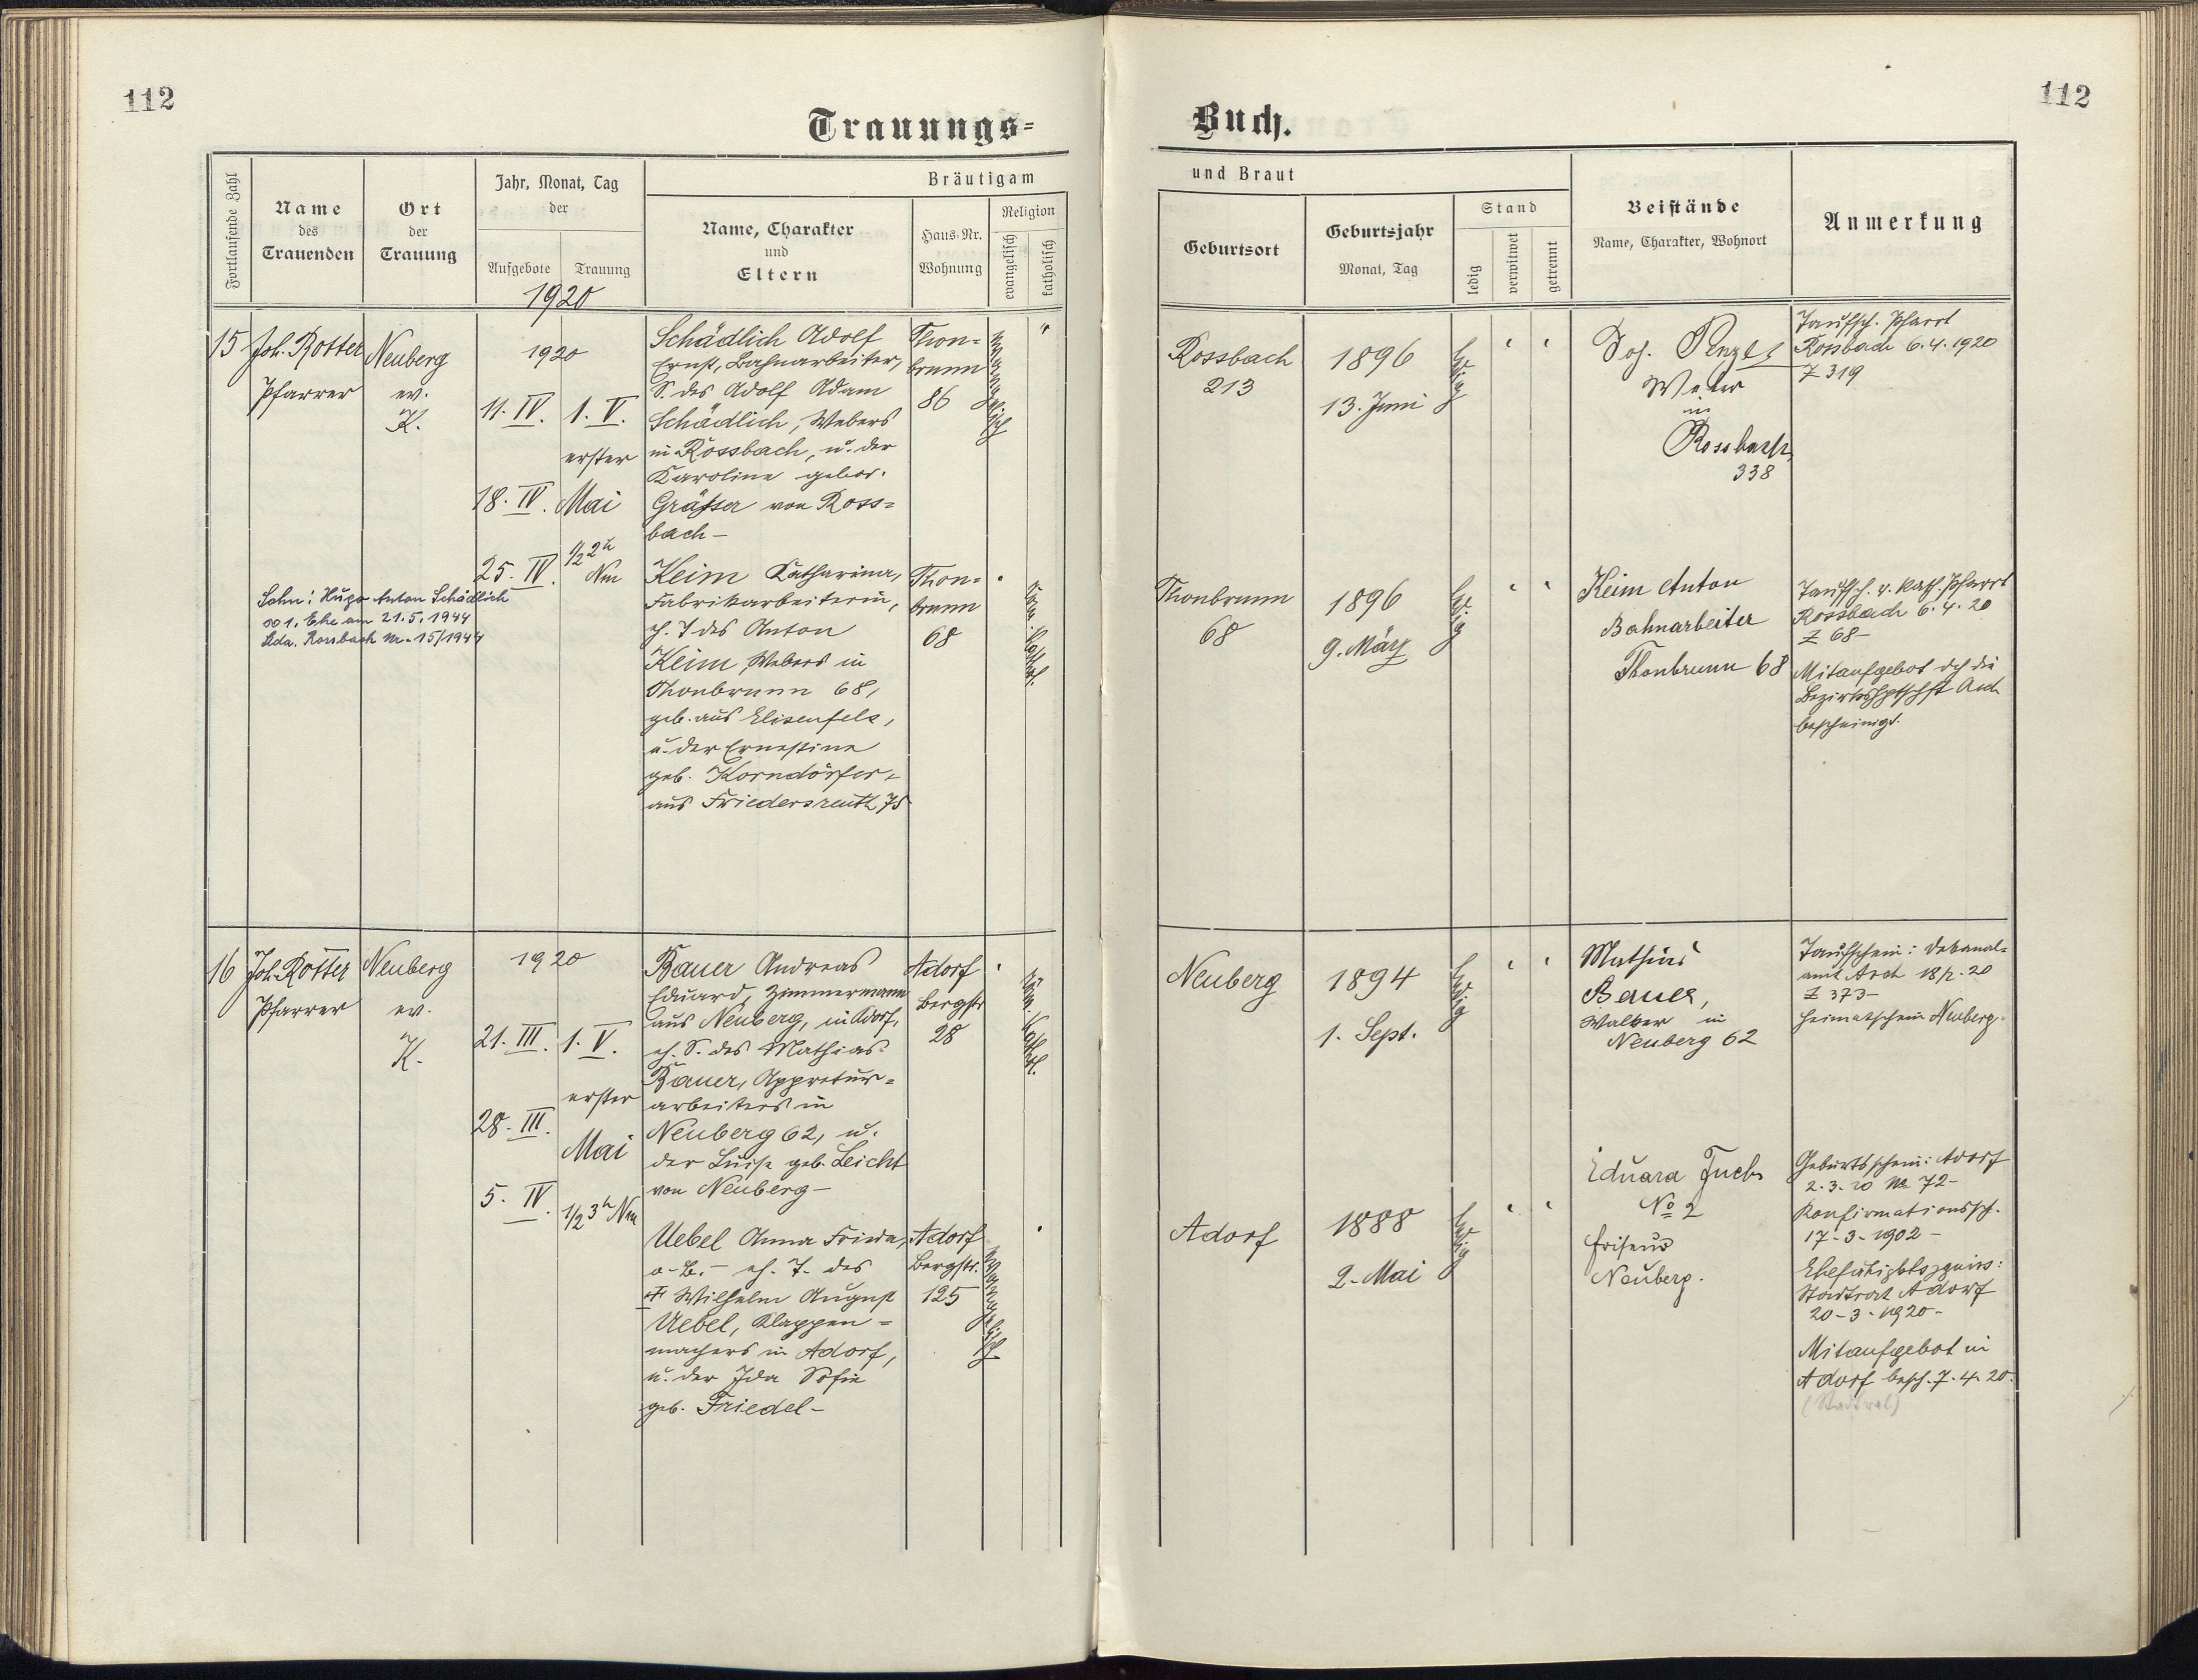 112
112
Trauungs=
Buch.
Fortlaufende Zahl
Name
des
Trauenden
Ort
der
Trauung
Jahr, Monat, Tag
der
Aufgebote
Trauung
1920
Bräutigam
Name, Charakter
und
Eltern
Haus-Nr.
Wohnung
Religion
evangelisch
katholisch
und Braut
Geburtsort
Geburtsjahr
Monat, Tag
Stand
ledig
verwitwet
getrennt
Beistände
Name, Charakter, Wohnort
Anmerkung
15
Joh. Rotter
Pfarrer
Neuberg
ev.
K.
1920
11. IV.
18. IV.
25. IV.
1. V.
erster
Mai
1/2 2 h
Nm
Schädlich Adolf
Ernst, Bahnarbeiter,
S. des Adolf Adam
Schädlich, Webers
in Rossbach, u. der
Karoline gebor.
Grässer von Ross=
bach –
Thon=
brunn
86
evangelisch
"
Rossbach
213
1896
13. Juni
ledig
Joh. Penzel
Weber
in
Rossbach
338
Taufsch. Pfarrt
Rossbach 6.4.1920
Z 319
Sohn: Hugo Anton Schädlich
∞ 1. Ehe am 21.5.1944
Sda. Rossbach Nr. 15/1944
Keim Katharina,
Fabrikarbeiterin,
eh. T des Anton
Keim, Webers in
Thonbrunn 68,
geb. aus Elisenfels,
u. der Ernestine
geb. Korndörfer,
aus Friedersreuth 75
Thon=
brunn
68
röm. kathol.
Thonbrunn
68
1896
9. März
ledig
Keim Anton
Bahnarbeiter
Thonbrunn 68
Taufsch. v. kath. Pfarrt
Rossbach 6.4.20
Z 68 –
Mitaufgebot dch die
Bezirkshptschft Asch
bescheinigt.
16
Joh. Rotter
Pfarrer
Neuberg
ev.
K.
1920
21. III.
28. III.
5. IV.
1. V.
erster
Mai
1/2 3 h Nm
Bauer Andreas
Eduard, Zimmermann
aus Neuberg, in Adorf,
eh. S. des Mathias
Bauer, Appretur=
arbeiters in
Neuberg 62, u.
der Luise geb. Leicht
von Neuberg –
Adorf
Bergstr
28
röm. kathol.
Neuberg
1894
1. Sept.
ledig
Mathias
Bauer,
Walker in
Neuberg 62
Taufschein: Dekanal=
amt Asch 18/2.20
Z 373 –
Heimatschein Neuberg.
Uebel Anna Frieda,
o. B. – eh. T. des
Wilhelm August
Uebel, Klappen=
machers in Adorf,
u. der Ida Sofie
geb. Friedel –
Adorf
Bergstr.
125
evangelisch
Adorf
1888
2. Mai
ledig
Eduard Fuchs
No 2
Friseur
Neuberg.
Geburtsschein: Adorf
2.3.20 No 72 –
Konfirmationssch.
17-3-1902 –
Ehefähigktszgnis:
Stadtrat Adorf
20-3-1920 –
Mitaufgebot in
Adorf besch. 7.4.20.
(Stadtrat)